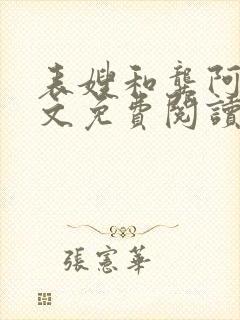 表嫂和龔阿
文免費閱讀
張憲華